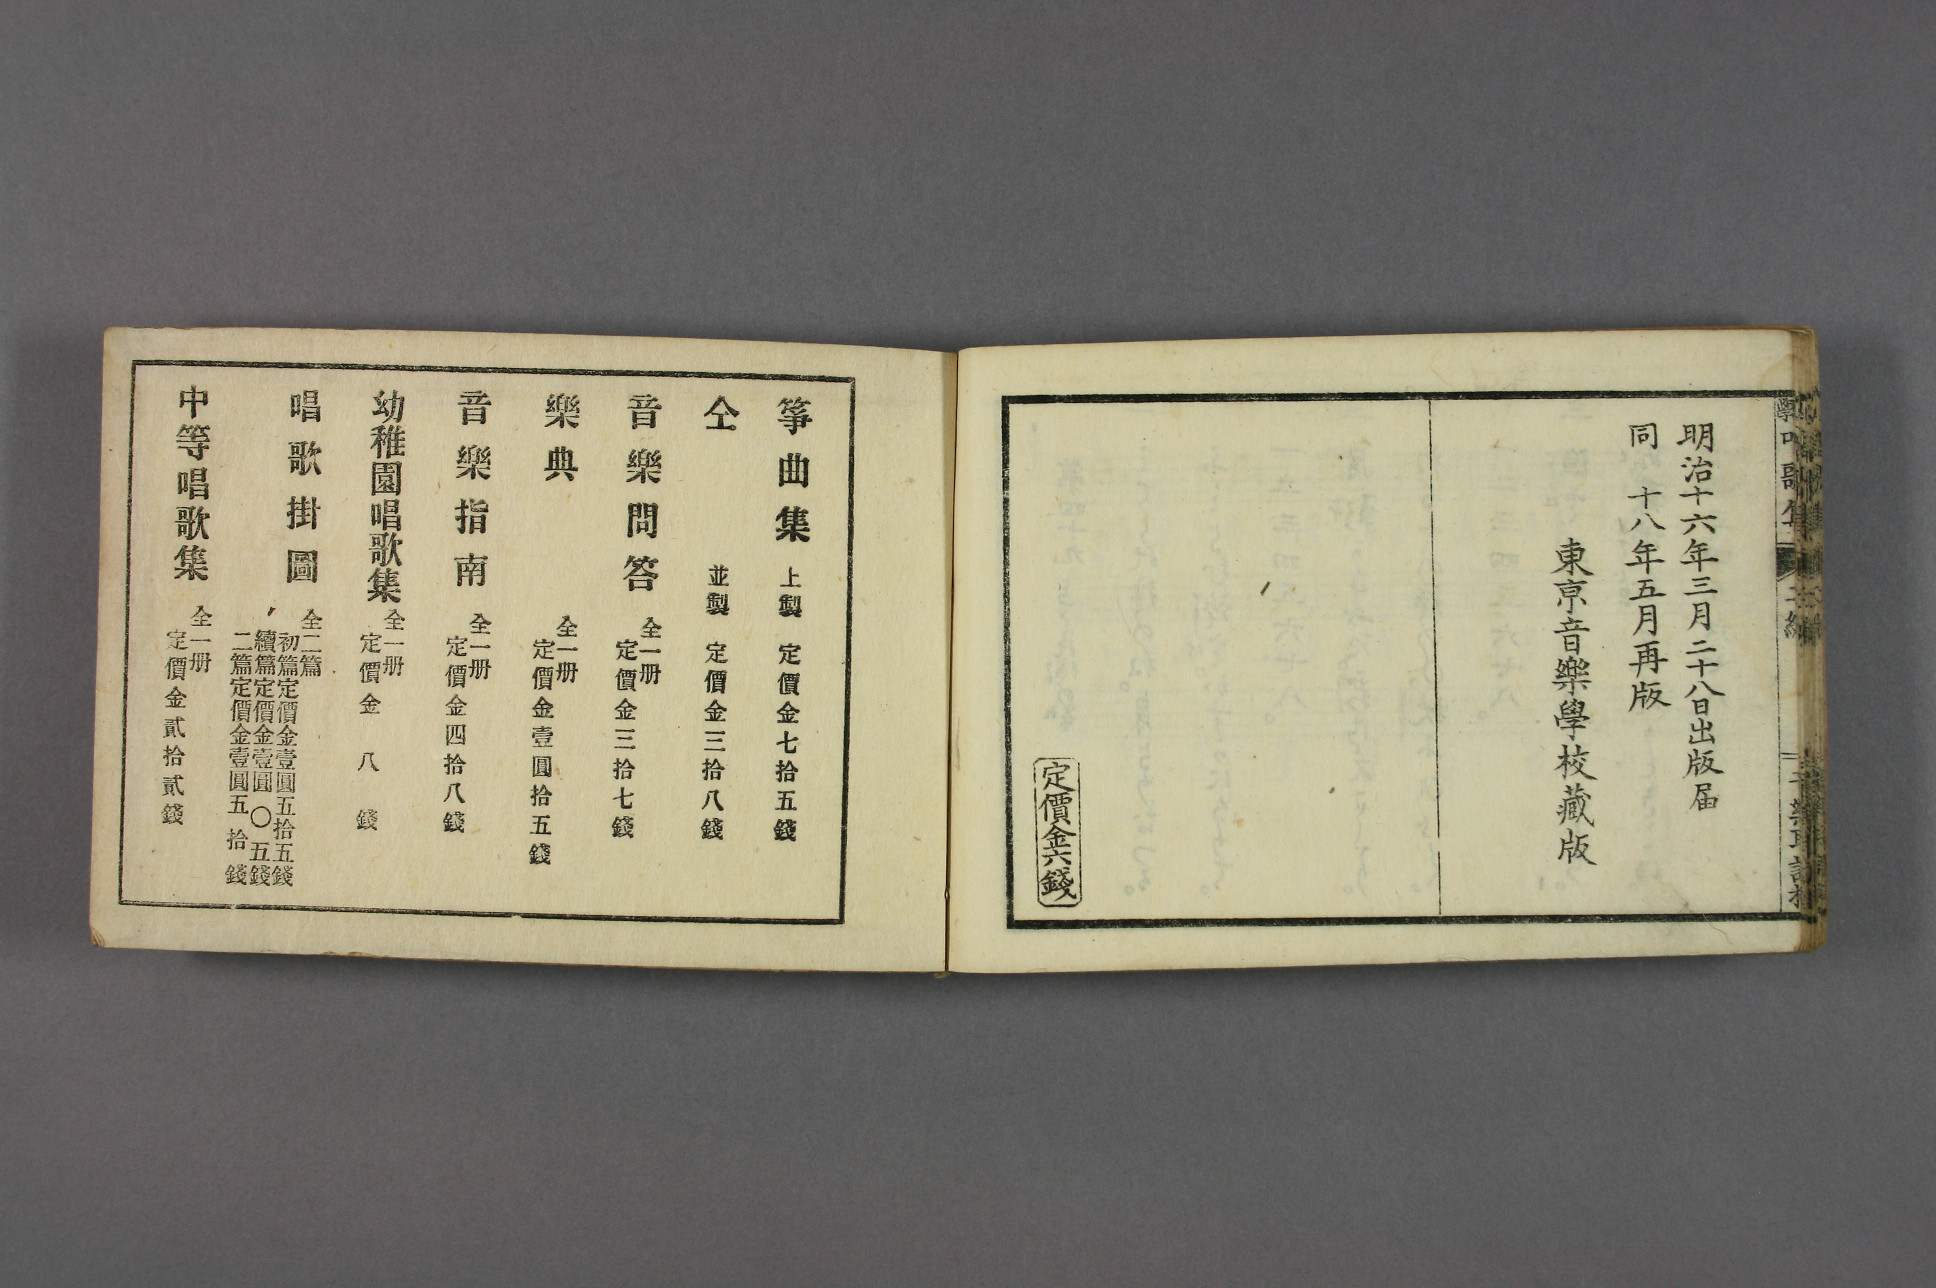 明治十六年三月二十八日出版届
同　十八年五月再版
東京音樂學校藏版
定價金六錢
箏曲集　上製　定價金七拾五錢
仝　並製　定價金三拾八錢
音樂問答　全一册
定價金三拾七錢
樂典　全一册
定價金壹圓拾五錢
音樂指南　全一册
定價金四拾八錢
幼稚園唱歌集　全一册
定價金八錢
唱歌掛圖　全二篇
初篇定價金壹圓五拾五錢
續篇定價金壹圓〇五錢
二篇定價金壹圓五拾錢
中等唱歌集　全一册
定價金貳拾貳錢